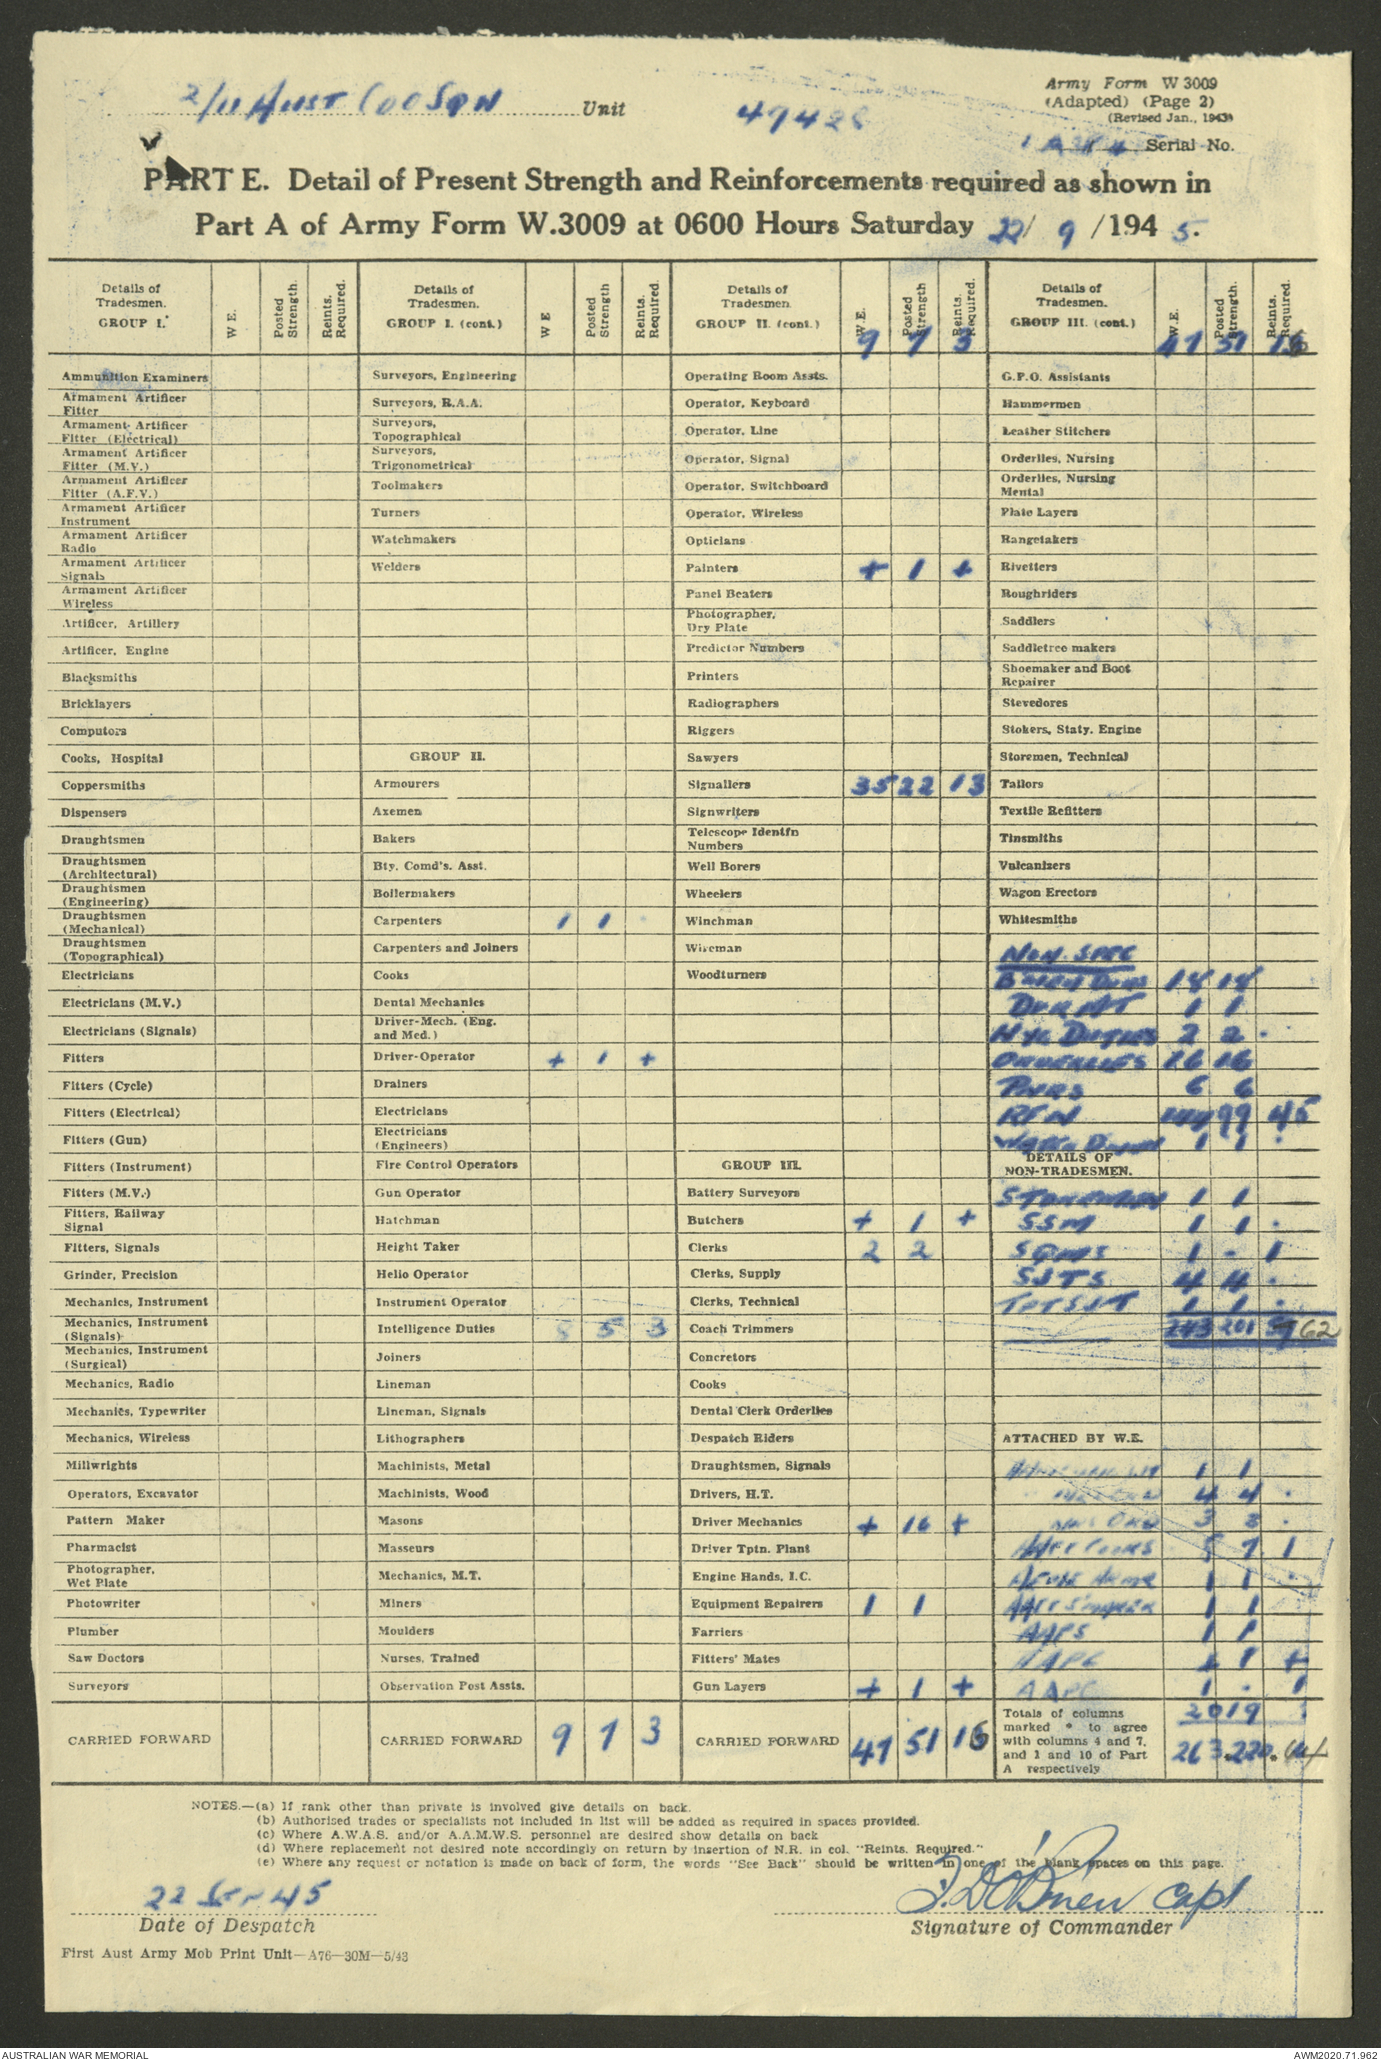 2/11 AUST CDO SQN Unit
47428
Army Form W 3009
(Adapted) (Page 2)
(Revised Jan., 1943)
Serial No.
PART E. Detail of Present Strength and Reinforcements required as shown in
Part A of Army Form W.3009 at 0600 Hours Saturday 22/ 9 /194 5.
Details of Tradesmen. GROUP I. W E. Posted Strength. Reinfs. Required.
Ammunition Examiners
Armament Artificer Fitter
Armament Artificer Fitter (Electrical)
Armament Artificer Fitter (M.V.)
Armament Artificer Fitter (A.F.V.)
Armament Artificer Instrument
Armament Artificer Radio
Armament Artificer Signals
Armament Artificer Wireless
Artificer, Artillery
Artificer, Engine
Blacksmiths
Bricklayers
Computors
Cooks, Hospital
Coppersmiths
Dispensers
Draughtsmen
Draughtsmen (Architectural)
Draughtsmen (Engineering)
Draughtsmen (Mechanical)
Draughtsmen (Topographical)
Electricians
Electricians (M.V.)
Electricians (Signals)
Fitters
Fitters (Cycle)
Fitters (Electrical)
Fitters (Gun)
Fitters (Instrument)
Fitters (M.V.)
Fitters, Railway Signal
Fitters, Signals
Grinder, Precision
Mechanics, Instrument
Mechanics, Instrument (Signals)
Mechanics, Instrument (Surgical)
Mechanics, Radio
Mechanics, Typewriter
Mechanics, Wireless
Millwrights
Operators, Excavator
Pattern Maker
Pharmacist
Photographer, Wet Plate
Photowriter
Plumber
Saw Doctors
Surveyors
CARRIED FORWARD
Details of Tradesmen. GROUP I. (cont.) W E Posted Strength Reinfs. Required.
Surveyors, Engineering
Surveyors, R.A.A.
Surveyors, Topographical
Surveyors, Trigonometrical
Toolmakers
Turners
Watchmakers
Welders
GROUP II.
Armourers
Axemen
Bakers
Bty. Comd's. Asst.
Boilermakers
Carpenters 1 1
Carpenters and Joiners
Cooks
Dental Mechanics
Driver-Mech. (Eng. and Med.)
Driver-Operator + 1 +
Drainers
Electricians
Electricians (Engineers)
Fire Control Operators
Gun Operator
Hatchman
Height Taker
Helio Operator
Instrument Operator
Intelligence Duties 8 5 3
Joiners
Lineman
Lineman, Signals
Lithographers
Machinists, Metal
Machinists, Wood
Masons
Masseurs
Mechanics, M.T.
Miners
Moulders
Nurses, Trained
Observation Post Assts.
CARRIED FORWARD 9 7 3
Details of Tradesmen. GROUP II. (cont.) W.E. Posted Strength Reinfs. Required.
9 7 3
Operating Room Assts.
Operator, Keyboard
Operator, Line
Operator, Signal
Operator, Switchboard
Operator, Wireless
Opticians
Painters + 1 +
Panel Beaters
Photographer, Dry Plate
Predictor Numbers
Printers
Radiographers
Riggers
Sawyers
Signallers 35 22 13
Signwriters
Telescope Identfn Numbers
Well Borers
Wheelers
Winchman
Wireman
Woodturners
GROUP III.
Battery Surveyors
Butchers + 1 +
Clerks 2 2
Clerks, Supply
Clerks, Technical
Coach Trimmers
Concretors
Cooks
Dental Clerk Orderlies
Despatch Riders
Draughtsmen, Signals
Drivers, H.T.
Driver Mechanics + 16 +
Driver Tptn. Plant
Engine Hands, I.C.
Equipment Repairers 1 1
Farriers
Fitters' Mates
Gun Layers + 1 +
CARRIED FORWARD 47 51 16
Details of Tradesmen. GROUP III. (cont.) W.E. Posted Strength. Reinfs. Required.
47 51 16
G.P.O. Assistants
Hammermen
Leather Stitchers
Orderlies, Nursing
Orderlies, Nursing Mental
Plate Layers
Rangetakers
Rivetters
Roughriders
Saddlers
Saddletree makers
Shoemaker and Boot Repairer
Stevedores
Stokers, Staty. Engine
Storemen, Technical
Tailors
Textile Refitters
Tinsmiths
Vulcanizers
Wagon Erectors
Whitesmiths
NON. SPEC
14 14
DVR AT 1 1
HYG DUTIES 2 2 .
ORDERLIES 16 16
PNRS 6 6
RFN 144 99 45
1 1 .
DETAILS OF NON-TRADESMEN.
STOREMAN 1 1
SSM 1 1 .
SQMS 1 - 1
SJTS 4 4 .
TPT SJT 1 1 .
243 201 62
ATTACHED BY W.E.
1 1
4 4 .
3 3 .
AACC COOKS 7 1
1 1 .
1 1
AAPS 1 1
+ 1 +
AAPC 1 . 1
Totals of columns marked * to agree with columns 4 and 7, and 1 and 10 of Part A respectively
20 19
263 220 64
NOTES.—(a) If rank other than private is involved give details on back.
(b) Authorised trades or specialists not included in list will be added as required in spaces provided.
(c) Where A.W.A.S. and/or A.A.M.W.S. personnel are desired show details on back
(d) Where replacement not desired note accordingly on return by insertion of N.R. in col. "Reints. Required."
(e) Where any request or notation is made on back of form, the words "See Back" should be written in one of the blank spaces on this page.
22 SEP 45
Date of Despatch
J. D O'Brien Capt
Signature of Commander
First Aust Army Mob Print Unit—A76—30M—5/43
AUSTRALIAN WAR MEMORIAL
AWM2020.71.962